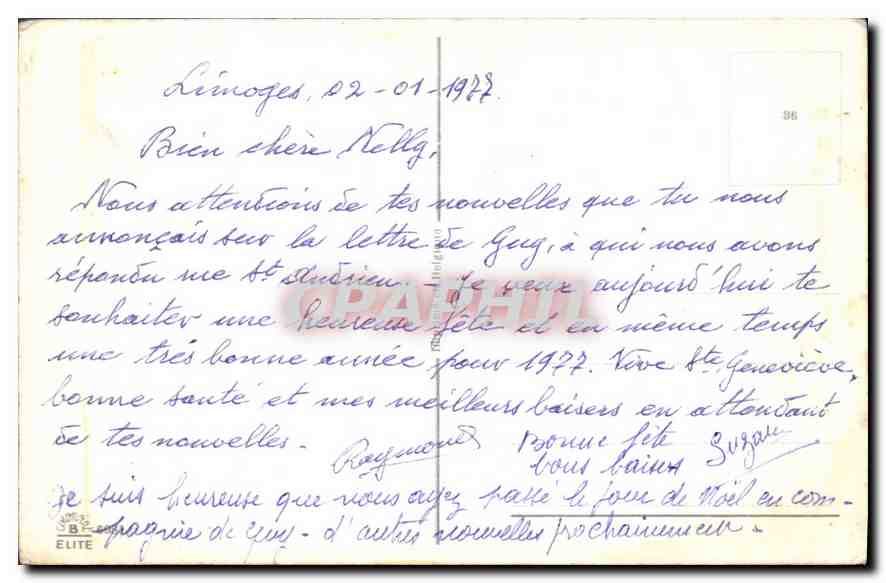 Limoges, 02-01-1977.
36
Bien chère Nelly,
Nous attendions de tes nouvelles que tu nous
annonçais sur la lettre de Guy, à qui nous avons
répondu rue St Andrieu. - Je veux aujourd'hui te
souhaiter une heureuse fête et en même temps
une très bonne année pour 1977. Vive Ste Geneviève,
bonne santé et mes meilleurs baisers en attendant
de tes nouvelles -
Raymond
Bonne fête
bons baisers
Suzan
Je suis heureuse que vous ayez passé le jour de Noël en com-
pagnie de Guy - d'autres nouvelles prochainement.
B
ELITE
CPAPHIL